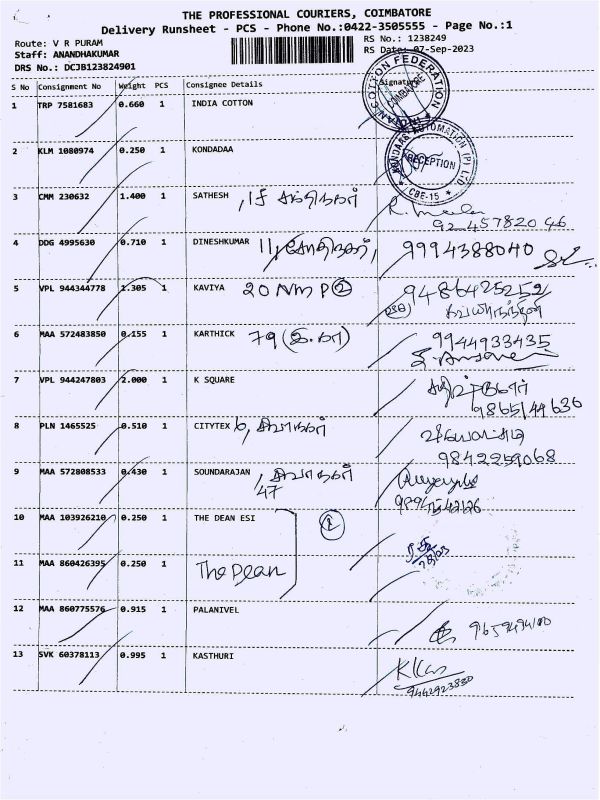 THE PROFESSIONAL COURIERS, COIMBATORE
Delivery Runsheet - PCS - Phone No.:0422-3505555 - Page No.:1
Route: V R PURAM
RS No.: 1238249
Staff: ANANDHAKUMAR
RS Date: 07-Sep-2023
DRS No.: DCJB123824901
S No Consignment No Weight PCS Consignee Details Signature
1 TRP 7581683 0.660 1 INDIA COTTON
COTTON FEDERATION
COIMBATORE
2 KLM 1080974 0.250 1 KONDADAA
KONDAAS AUTOMATION (P) LTD
RECEPTION
CBE-15
3 CMM 230632 1.400 1 SATHESH
4 DDG 4995630 0.710 1 DINESHKUMAR 11, 9994388040
5 VPL 944344778 1.305 1 KAVIYA 20 NMP 2 9486425252
6 MAA 572483850 0.155 1 KARTHICK 79 (இ.கா) 9944933435
7 VPL 944247803 2.000 1 K SQUARE
9865144636
8 PLN 1465525 0.510 1 CITYTEX 6,
9842259068
9 MAA 572808533 0.430 1 SOUNDARAJAN
47
10 MAA 103926210 0.250 1 THE DEAN ESI
11 MAA 860426395 0.250 1 The Dean
12 MAA 860775576 0.915 1 PALANIVEL
13 SVK 60378113 0.995 1 KASTHURI
9442923830